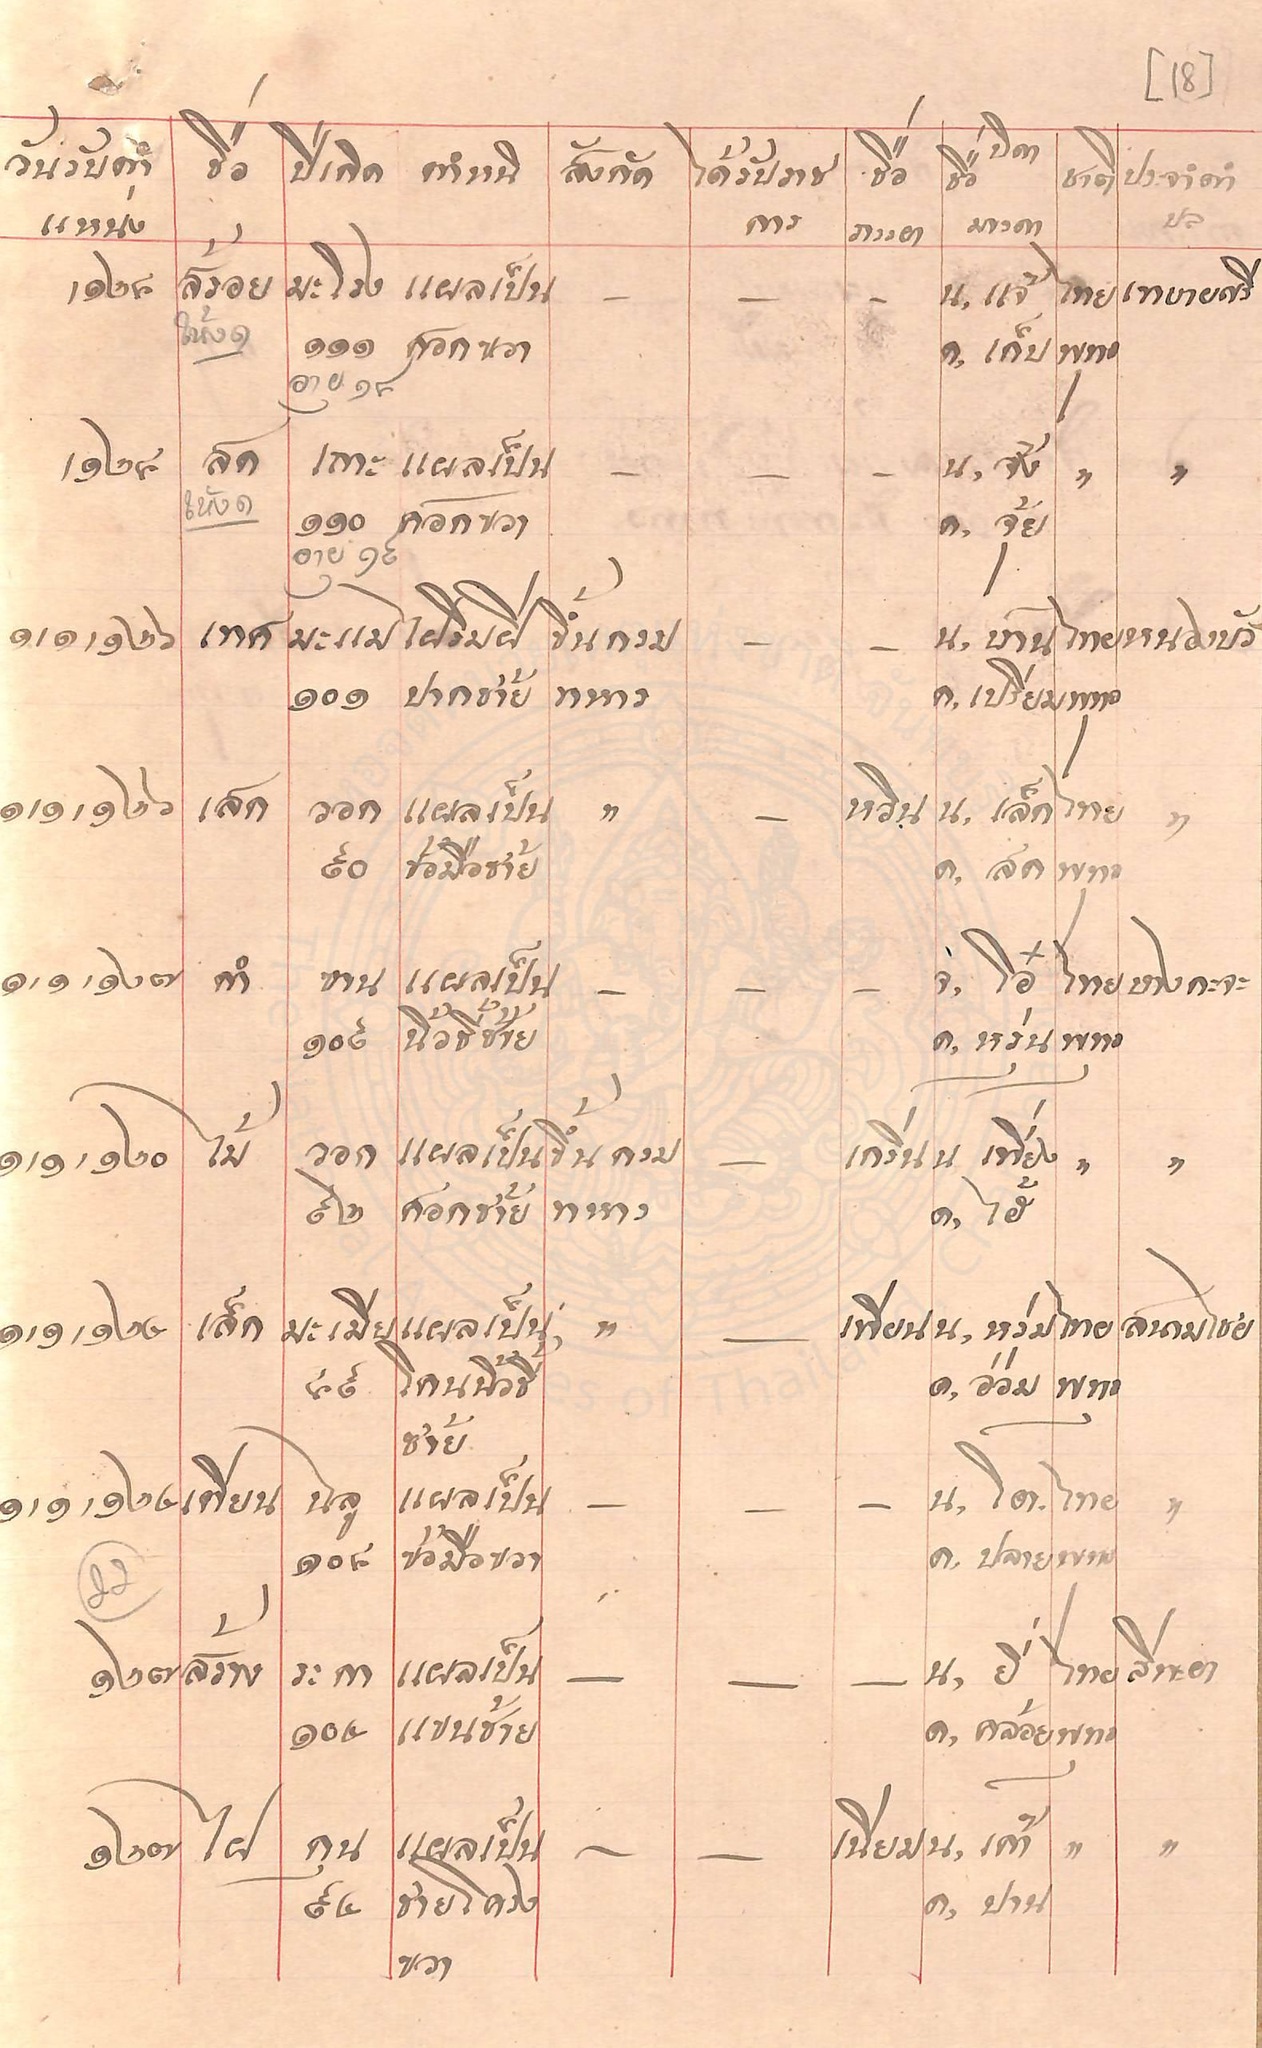 [18]
วันรับตำ ชื่อ ปีเกิด ตำหนิ สังกัด ได้รับราช ชื่อ ชื่อ บิดา ชาติ ประจำตำ
แหน่ง การ ภรรยา มารดา บล
๑๒๘ สร้อย มะโรง แผลเป็น — — — น, แจ้ ไทย เทบายศรี
ให้ง๑ ๑๑๑ ศอกขวา ด, เก็บ พุทธ
อายุ ๑๘
๑๒๘ สด เถาะ แผลเป็น — — — น, จัง " "
ให้ง๑ ๑๑๐ ศอกขวา ด, จุ้ย
อายุ ๑๙
๑,๑,๑๒๖ เทศ มะแม ไฝริมฝี ขึ้นกรม — — น, บ้าน ไทย หนองบัว
๑๐๑ ปากซ้าย ทหาร ด, เปรี่ยม พุทธ
๑,๑,๑๒๖ เสก วอก แผลเป็น " — หวิน น, เล็ก ไทย "
๙๐ ข้อมือซ้าย ด, สด พุทธ
๑,๑,๑๒๗ ดำ ขาน แผลเป็น — — — จ, โอ๋ ไทย บางกะจะ
๑๐๙ นิ้วชี้ซ้าย ด, หรุ่น พุทธ
๑,๑,๑๒๐ ไม้ วอก แผลเป็น ขึ้นกรม — เกริ่น น เที่ยง " "
๙๒ ศอกซ้าย ทหาร ด, ไฮ้
๑,๑,๑๒๔ เล็ก มะเมีย แผลเป็น " — เพียน น, หรุ่ม ไทย สนามไชย
๘๙ โคนนิ้วชี้ ด, อ่วม พุทธ
ซ้าย
๑,๑,๑๒๔ เทียน ฉลู แผลเป็น — — — น, โต. ไทย "
22 ๑๐๘ ข้อมือขวา ด, ปลาย พุทธ
๑๒๗ สร้าง ระกา แผลเป็น — — — น, ยี่ ไทย สีพยา
๑๐๔ แขนซ้าย ด, คล้อย พุทธ
๑๒๗ ไฝ กุน แผลเป็น — — เนียม น, เก๊า " "
๙๔ ชายโครง ด, ปาน
ขวา